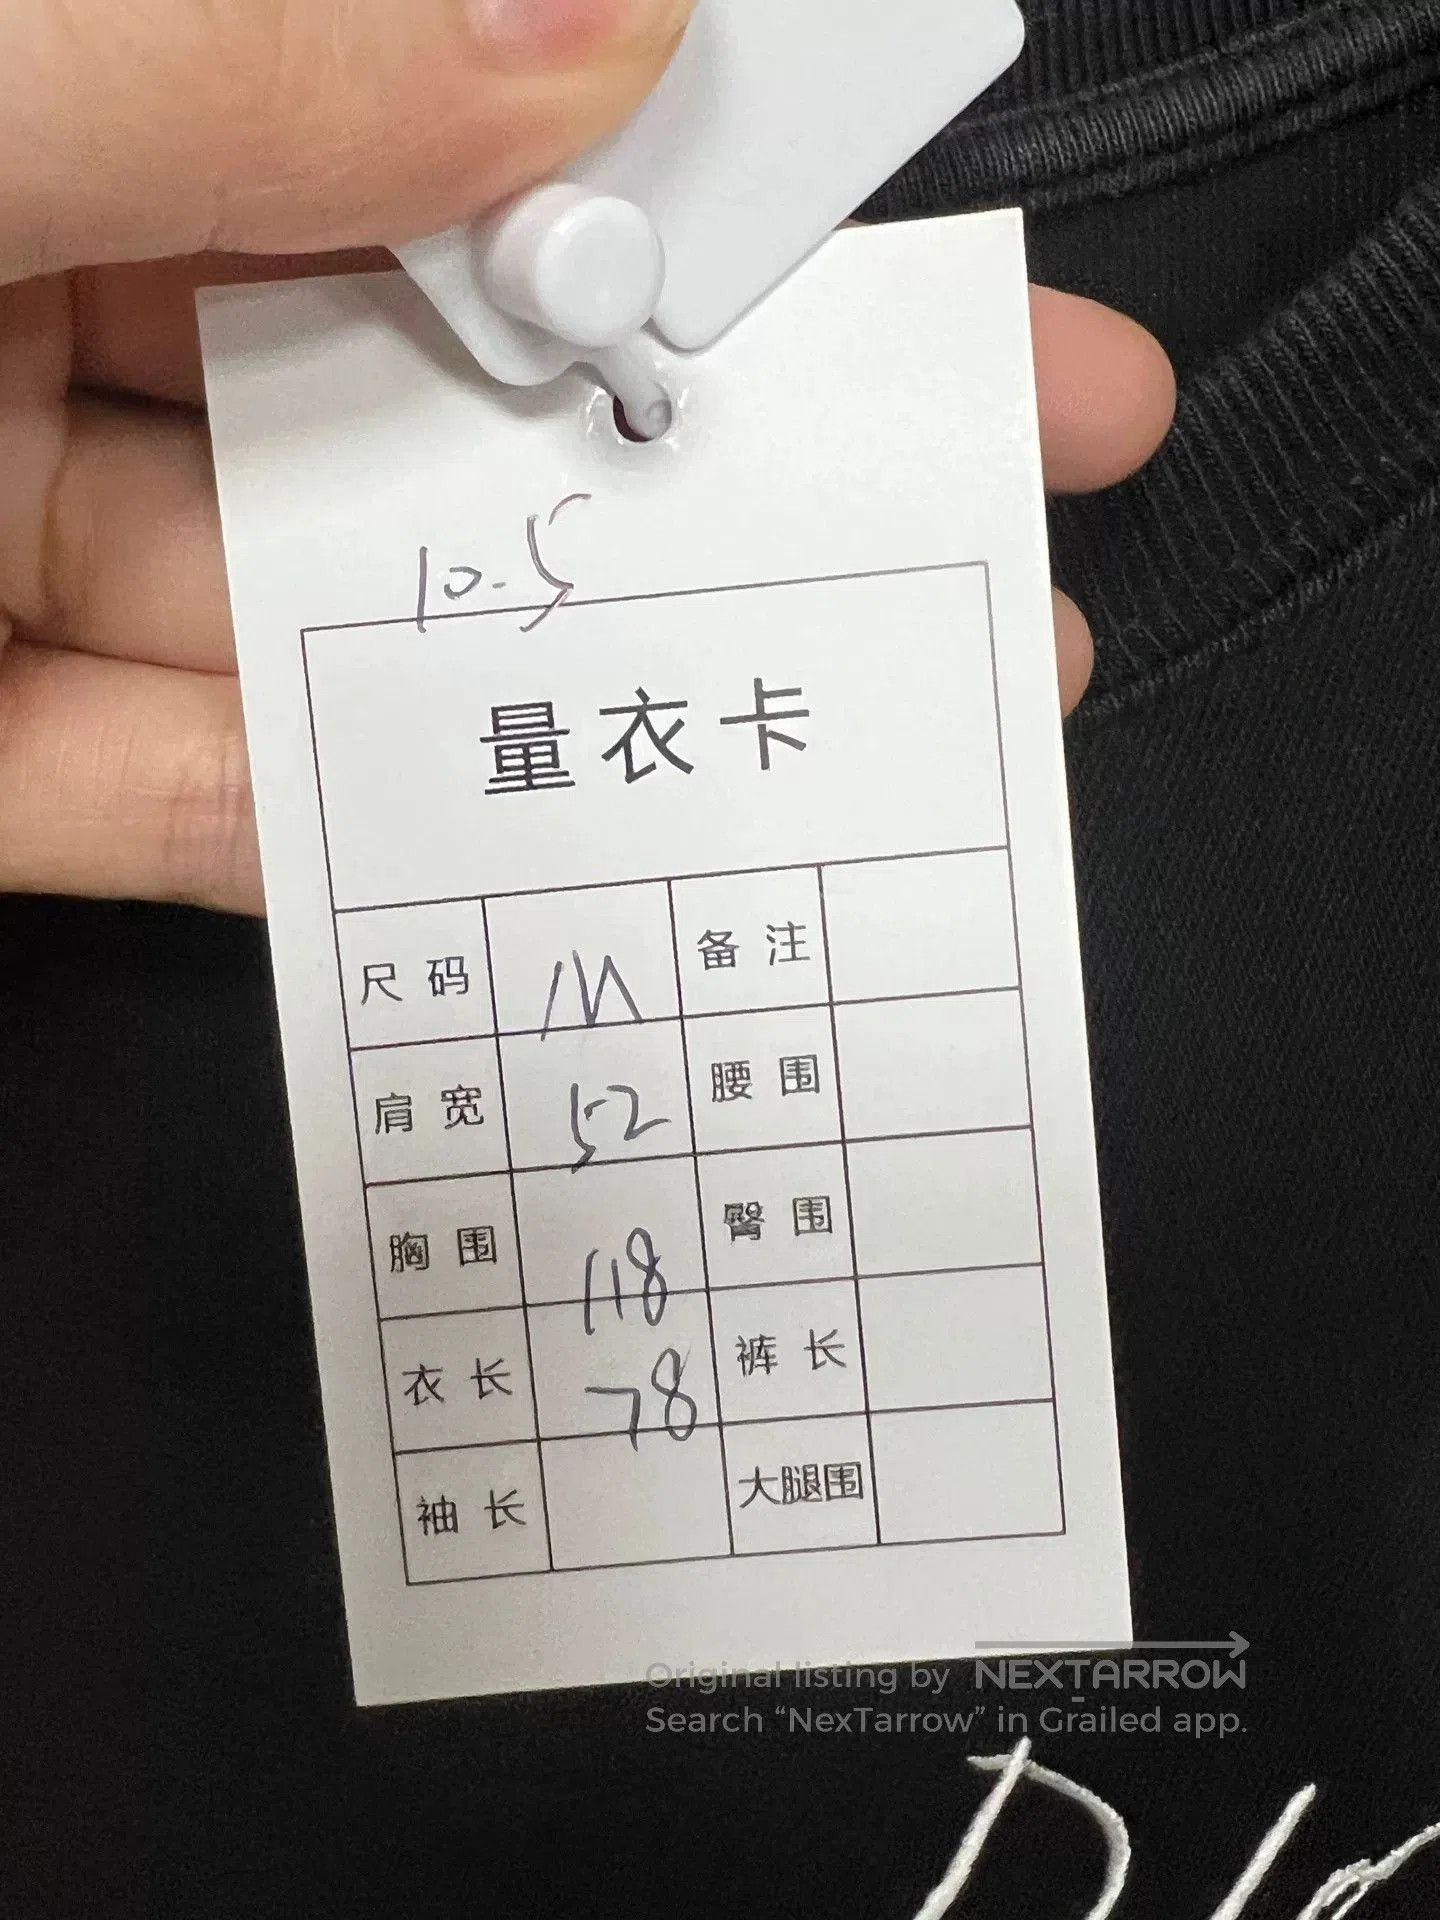 10.5
量衣卡
尺码 M 备注
肩宽 52 腰围
胸围 118 臀围
衣长 78 裤长
袖长 大腿围
Original listing by NEXTARROW
Search “NexTarrow” in Grailed app.